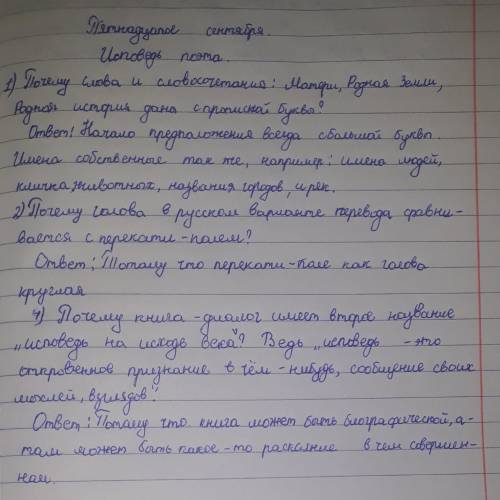 Пятнадцатое сентября.
Исповедь поэта.
1) Почему слова и словосочетания: Матери, Родная Земли,
Родной история дана с прописной буквы?
Ответ! Начало предположения всегда с большой буквы.
Имена собственные так же, например: имена людей,
кличка животных, названия городов, и рек.
2) Почему голова в русском варианте перевода сравни-
вается с перекати-полем?
Ответ: Потому что перекати-поле как голова
круглая
4) Почему книга-диалог имеет второе название
"исповедь на исходе века"? Ведь "исповедь - это
откровенное признание в чём-нибудь, сообщение своих
мыслей, взглядов".
Ответ: Потому что книга может быть биографической, а-
там может быть какое-то раскаяние в чем совершен-
ном.